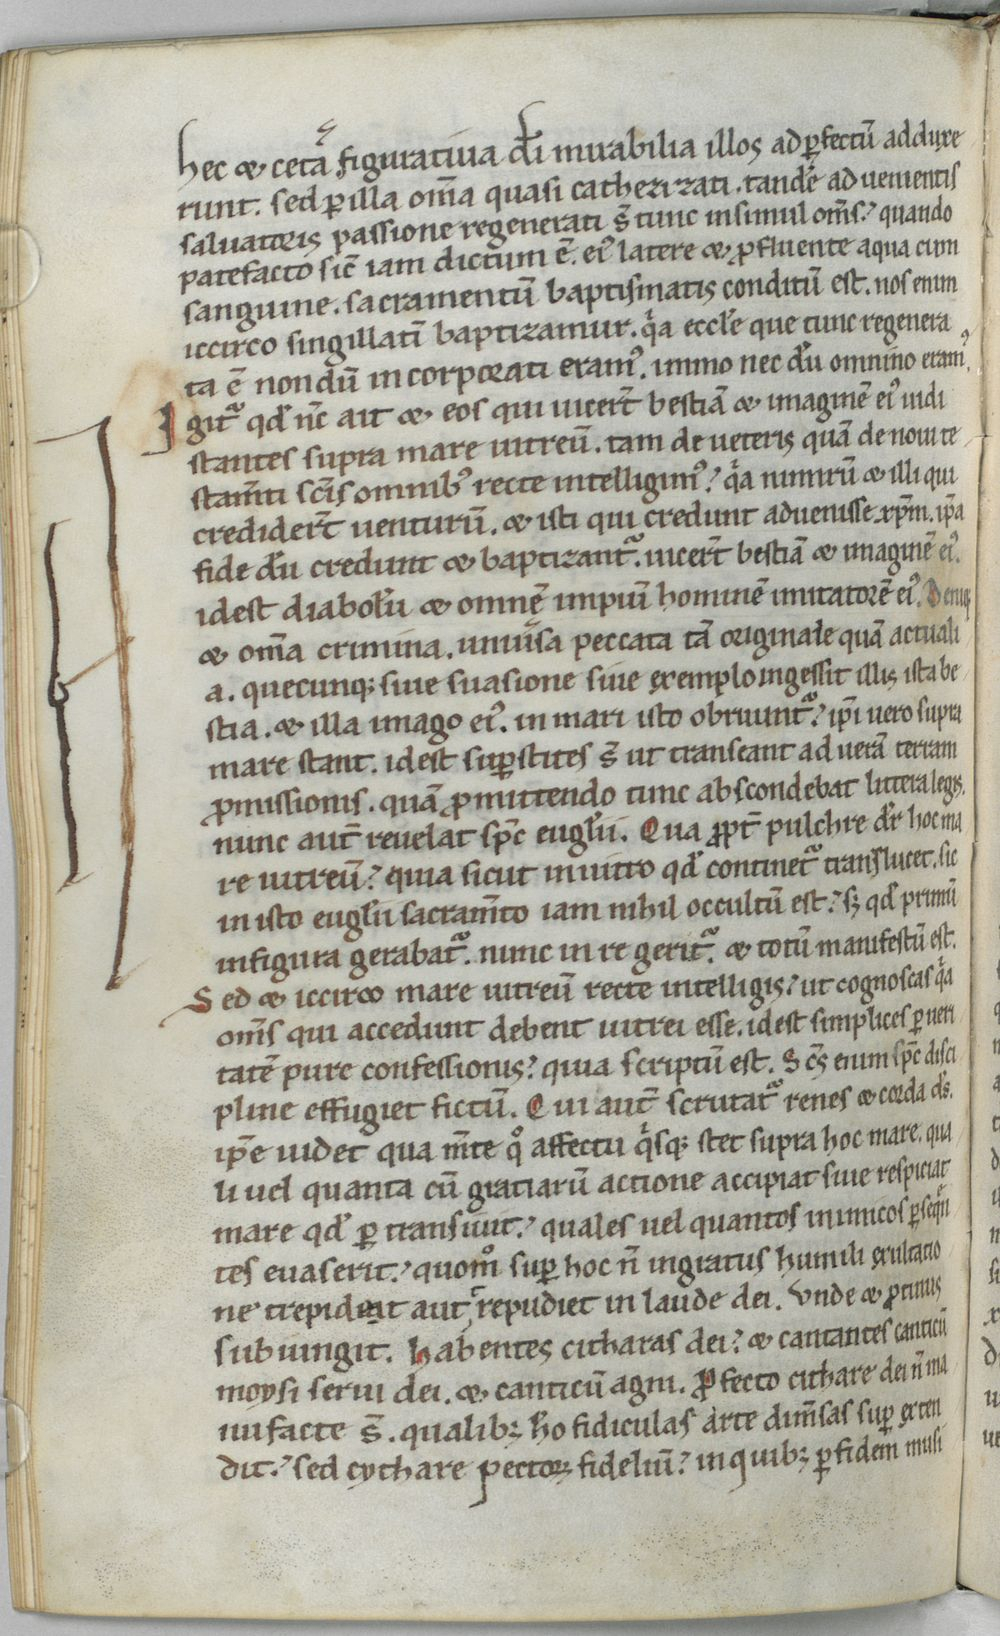 hec & cetã figuratiua di mirabilia illos ad ꝑfectũ adduxe
runt. sed ꝑ illa om̃a quasi cathezizati. tandẽ aduenientis
saluatoris passione regenerati s̃t tunc insimul om̃s? quando
patefacto sic̃ iam dictum ẽ. eiꝰ latere & ꝓfluente aqua cum
sanguine. sacramentũ baptismatis conditũ est. nos enim
iccirco singillatĩ baptizamur. q̃a eccl̃e que tunc regenera
ta ẽ nondũ incorporati eramꝰ. immo nec dũ omnino eramꝰ.
Igit᷑ qd̃ nc̃ ait & eos qui uicer̃t bestiã & imaginẽ eiꝰ uidi
stantes supra mare uitreũ. tam de ueteris quã de noui te
stam̃ti sc̃is omnibꝰ recte intelligimꝰ? q̃a nimirũ & illi qui
crediderт̃ uenturũ. & isti qui credunt aduenisse xp̃m. ip̃a
fide dũ credunt & baptizant᷑. uicer̃t bestiã & imaginẽ eiꝰ.
idest diabolũ & omnẽ impiũ hominẽ imitatorẽ eiꝰ. Deniqꝫ
& om̃a crimina. uniũsa peccata tã originale quã actuali
a. quecunqꝫ siue suasione siue exemplo ingessit illis ista be
stia. & illa imago eiꝰ. in mari isto obruunt᷑? ip̃i uero supra
mare stant. idest suꝑstites s̃t ut transeant ad uerã terram
ꝓmissionis. quã ꝓmittendo tunc abscondebat littera legis.
nunc aut̃ reuelat sp̃c eugl̃ii. Qua ꝓpt̃ pulchre dr̃ hoc ma
re uitreũ? quia sicut in uitro qd̃ continet᷑ translucet. sic
in isto eugl̃ii sacram̃to iam nihil occultũ est? sꝫ qd̃ primũ
in figura gerabat᷑. nunc in re gerit᷑. & totũ manifestũ est.
Sed & iccirco mare uitreũ recte intelligis? ut cognoscas q̃a
om̃s qui accedunt debent uitrei esse. idest simplices ꝑ ueri
tatẽ pure confessionis? quia scriptũ est. Sc̃s enim sp̃c disci
pline effugiet fictũ. Qui aut̃ scrutat᷑ renes & corda ds̃.
ip̃e uidet qua m̃te q° affectu q̃sqꝫ stet supra hoc mare. qua
li uel quanta cũ gratiarũ actione accipiat siue respiciat
mare qd̃ ꝑtransiuit? quales uel quantos inimicos ꝑseq̃n
tes euaserit? quom̊ suꝑ hoc ñ ingratus humili exultatio
ne trepidet aut repudiet in laude dei. Vnde & ꝓtinus
subiungit. habentes citharas dei? & cantantes canticũ
moysi serui dei. & canticũ agni. Ꝓfecto cithare dei ñ ma
nufacte s̃t. qualibꝫ hõ fidiculas arte dim̃sas suꝑ exten
dit? sed cythare pectoꝝ fideliũ? in quibꝫ ꝑ fidem musi